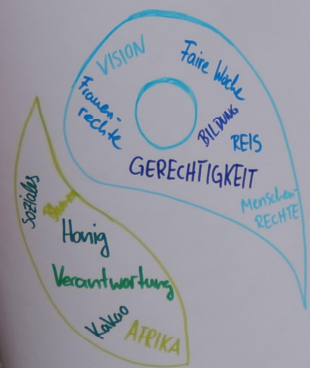 VISION
Faire Woche
Frauen-
rechte
BILDUNG
REIS
GERECHTIGKEIT
Menschen-
RECHTE
Soziales
Honig
Verantwortung
Kakao
AFRIKA